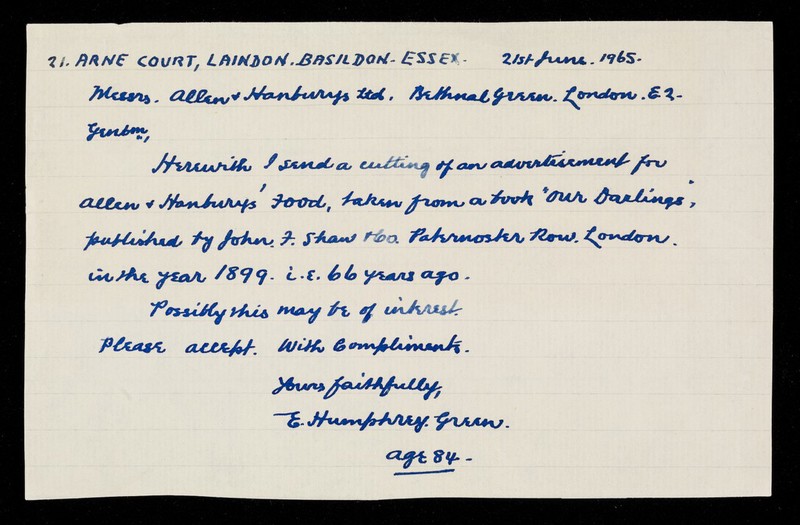 21. ARNE COURT, LAINDON. BASILDON. ESSEX. 21st June. 1965.
Messrs. Allen & Hanburys Ltd. Bethnal Green. London. E2.
Gentmn,
Herewith I send a cutting of an advertisement for
Allen & Hanburys' Food, taken from a book "Our Darlings",
published by John. F. Shaw & Co. Paternoster Row. London.
in the year 1899. i.e. 66 years ago.
Possibly this may be of interest.
Please accept. With Compliments.
Yours faithfully,
E. Humphrey. Green.
age 84.